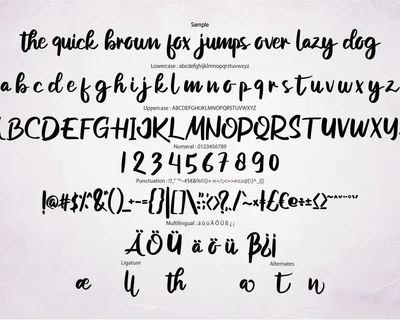 Sample
the quick brown fox jumps over lazy dog
Lowercase : abcdefghijklmnopqrstuvwxyz
a b c d e f g h i j k l m n o p q r s t u v w x y z
Uppercase : ABCDEFGHIJKLMNOPQRSTUVWXYZ
ABCDEFGHIJKLMNOPQRSTUVWXY
Numeral : 0123456789
1 2 3 4 5 6 7 8 9 0
Punctuation :
Multilingual : ä ö ü Ä Ö Ü ß ¿ ¡
ÄÖÜ äöü ß¿¡
Ligature
Alternates
æ th
t n